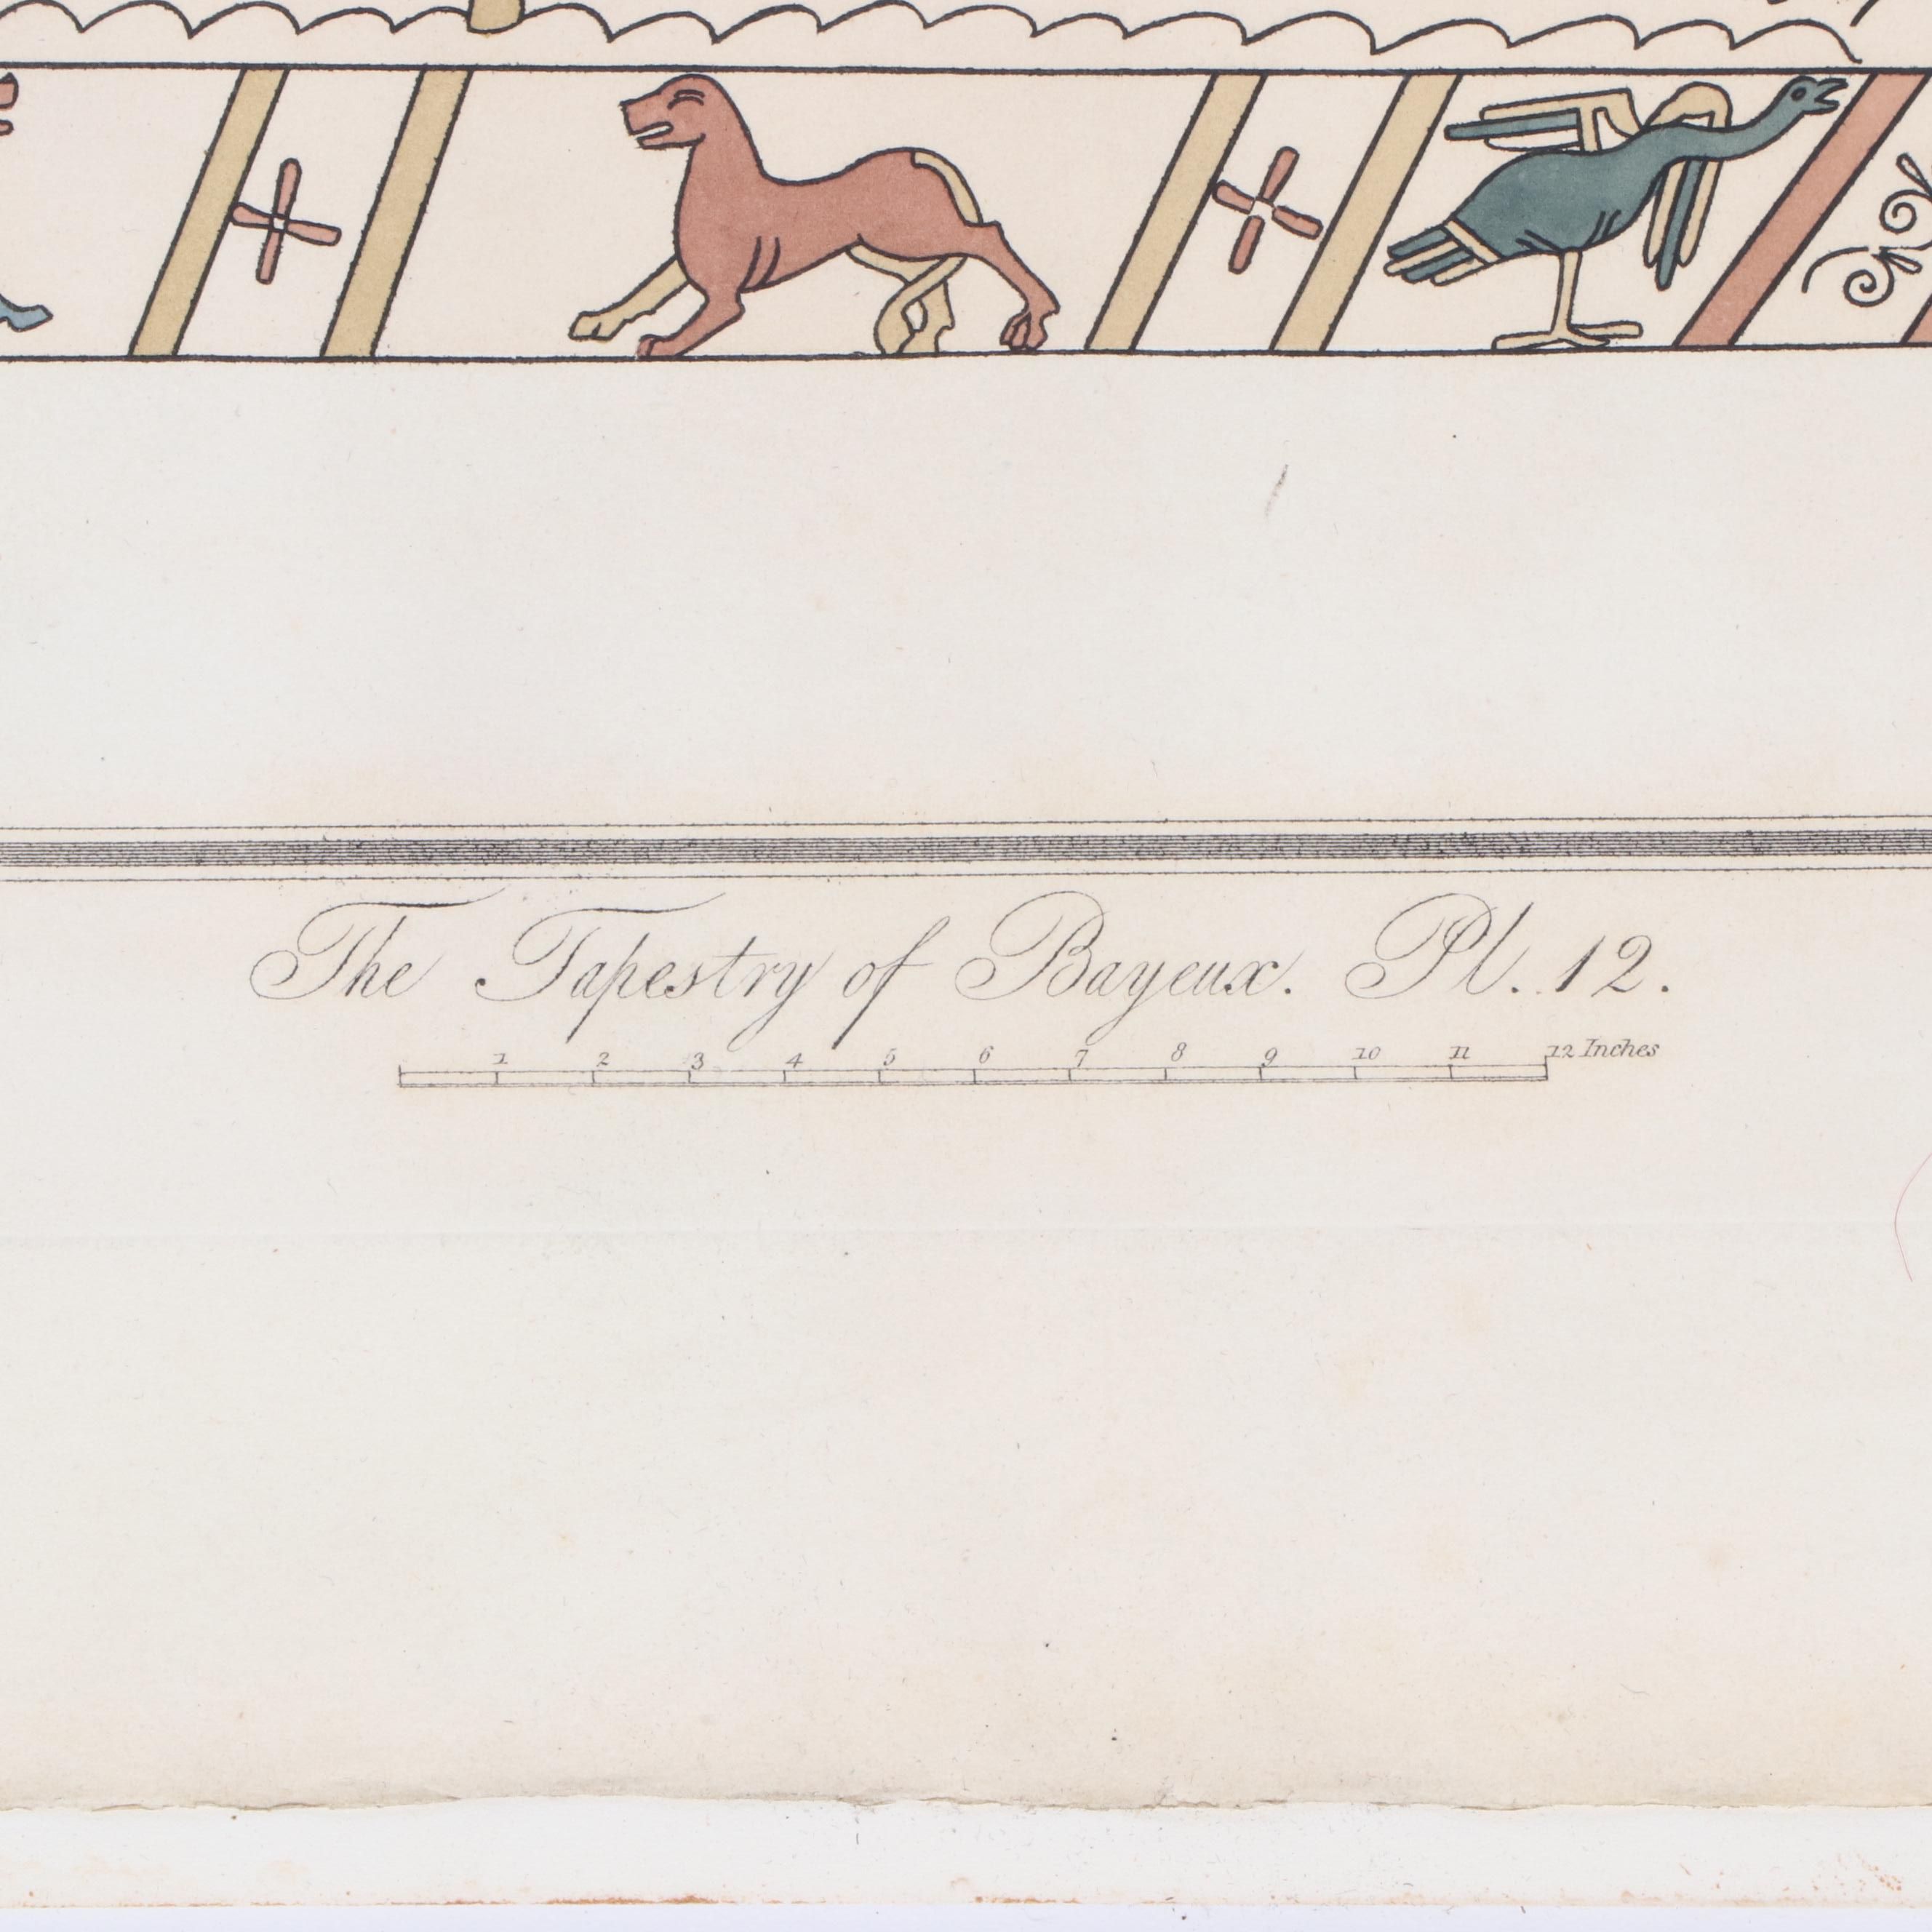 The Tapestry of Bayeux. Pl. 12.
1 2 3 4 5 6 7 8 9 10 11 12 Inches